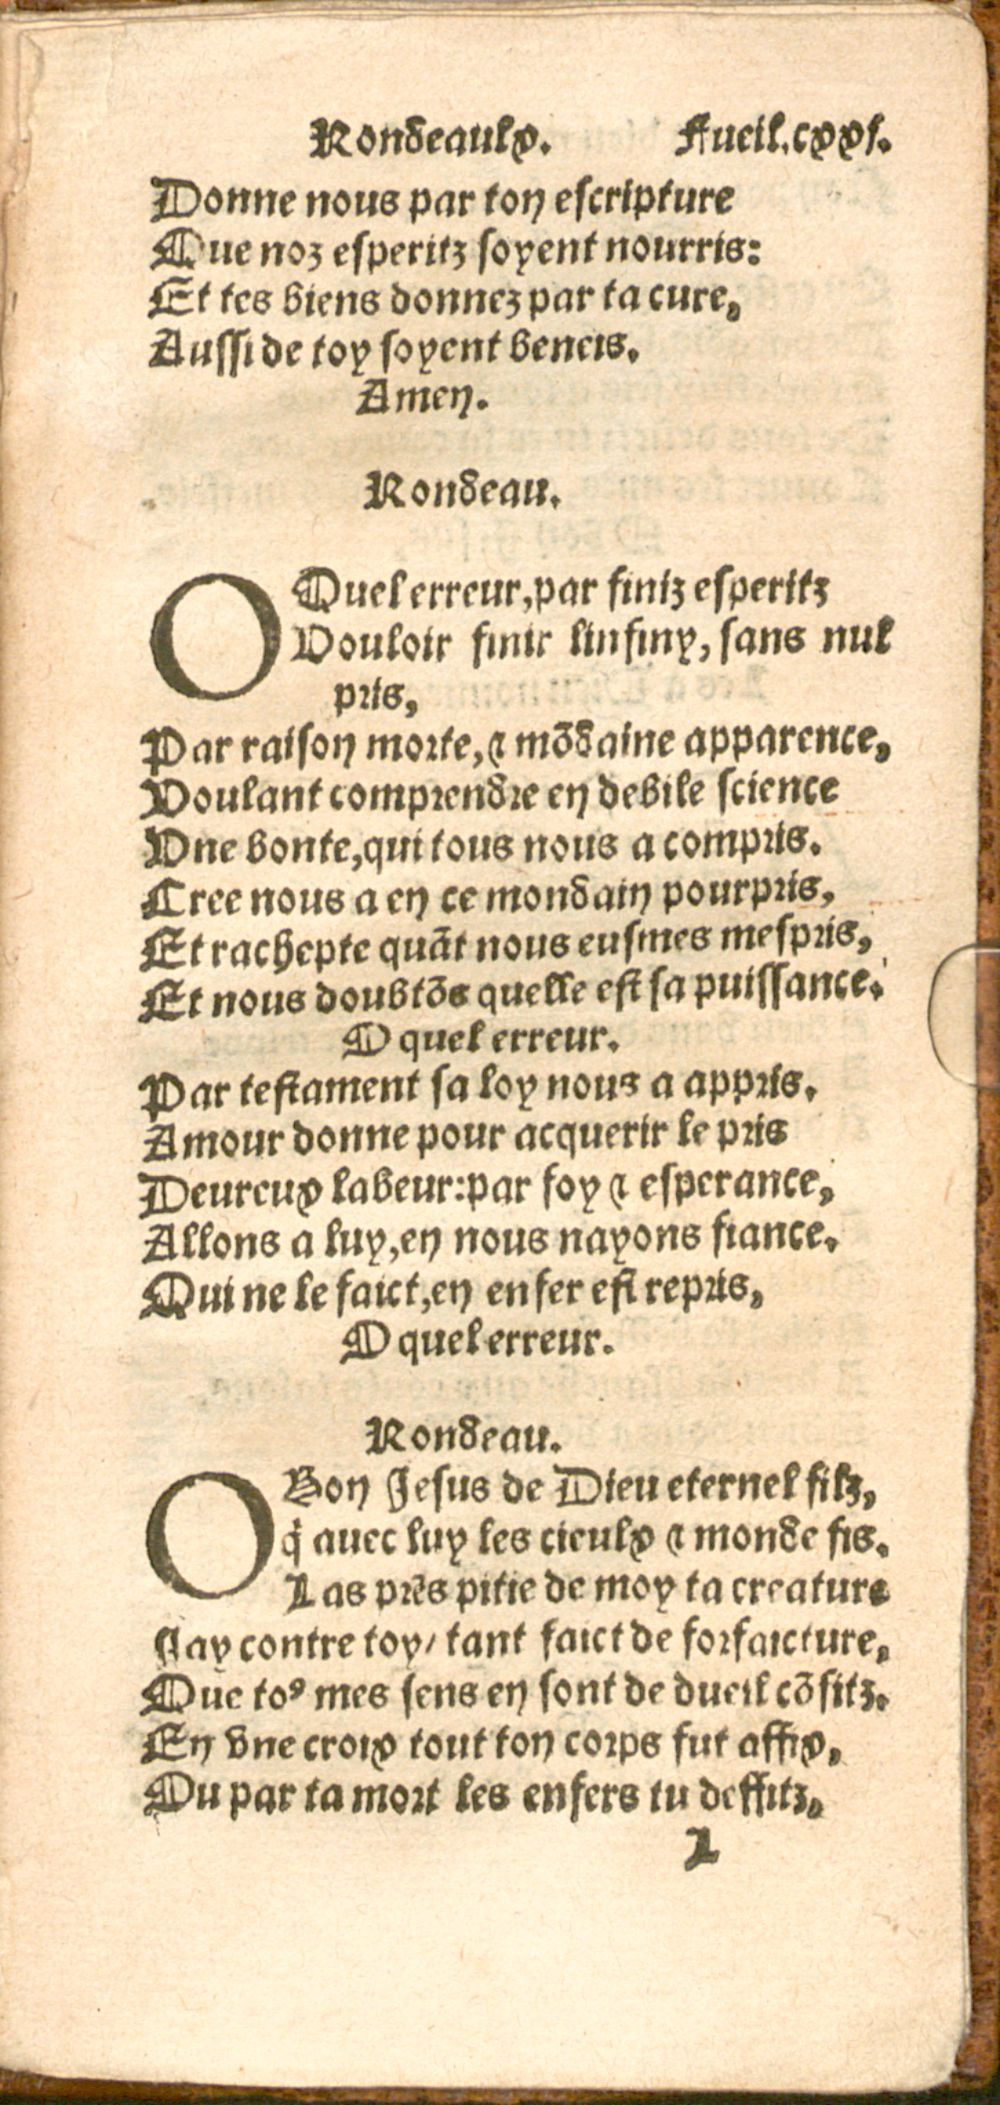 Rondeaulx. Fueil.cxxi.
Donne nous par ton escripture
Que noz esperitz soyent nourris:
Et tes biens donnez par ta cure,
Aussi de toy soyent beneis.
Amen.
Rondeau.
O Quel erreur, par finiz esperitz
Vouloir finir linfiny, sans nul
pris,
Par raison morte, ⁊ mõdaine apparence,
Voulant comprendre en debile science
Vne bonte, qui tous nous a compris.
Cree nous a en ce mondain pourpris,
Et rachepte quãt nous eusmes mespris,
Et nous doubtõs quelle est sa puissance.
O quel erreur.
Par testament sa loy nous a appris.
Amour donne pour acquerir le pris
Deureux labeur: par foy ⁊ esperance,
Allons a luy, en nous nayons fiance.
Qui ne le faict, en enfer est repris,
O quel erreur.
Rondeau.
O Bon Jesus de Dieu eternel filz,
q̇ auec luy les cieulx ⁊ monde fis.
Las prẽs pitie de moy ta creature
Jay contre toy/ tant faict de forfaicture,
Que toꝰ mes sens en sont de dueil cõfitz.
En vne croix tout ton corps fut affix,
Ou par ta mort les enfers tu deffitz,
L